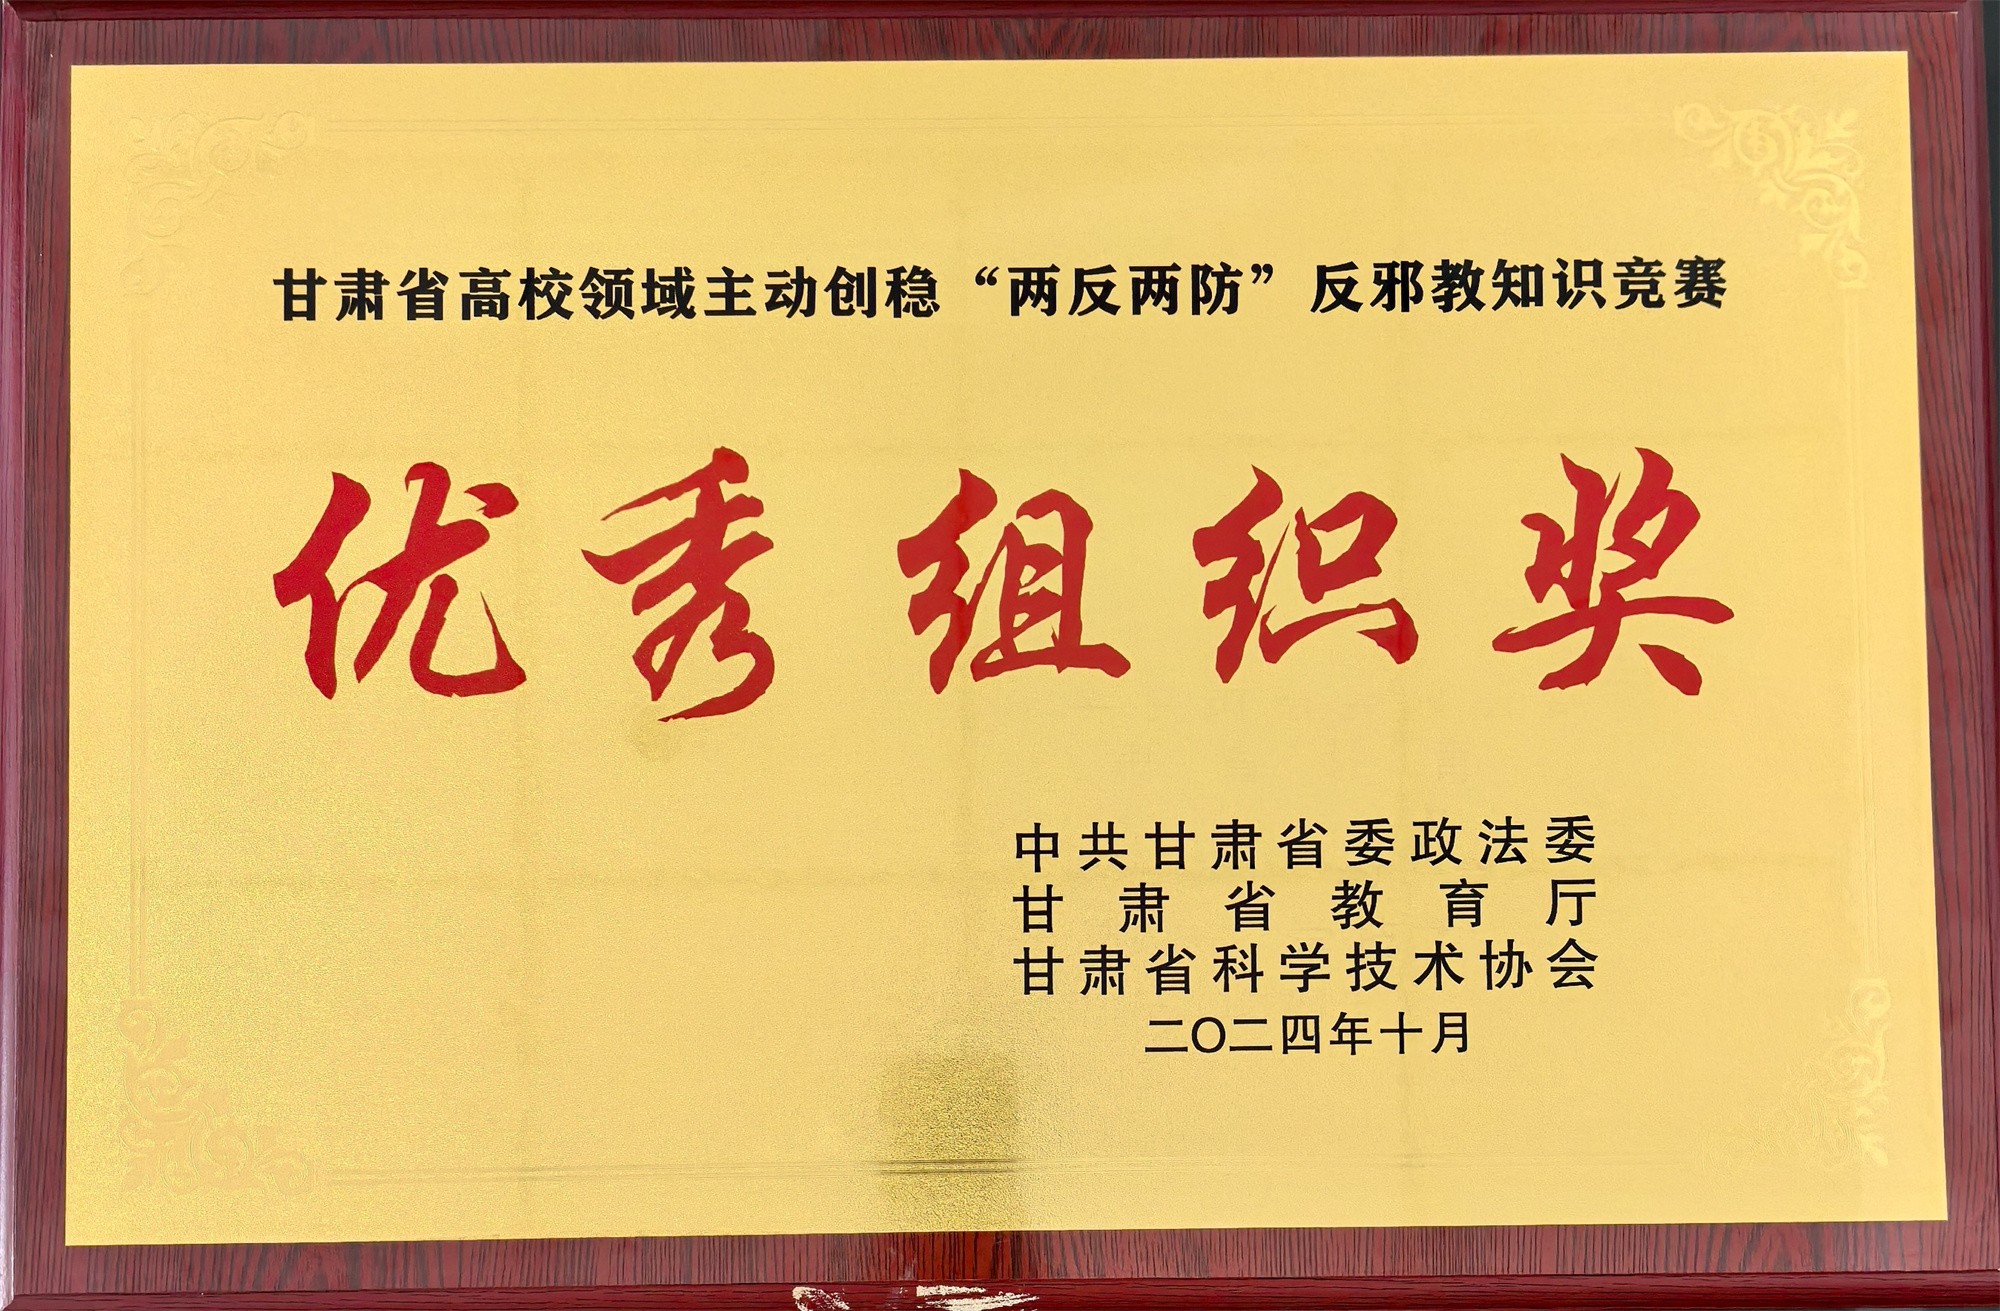 甘肃省高校领域主动创稳“两反两防”反邪教知识竞赛
优秀组织奖
中共甘肃省委政法委
甘肃省教育厅
甘肃省科学技术协会
二〇二四年十月